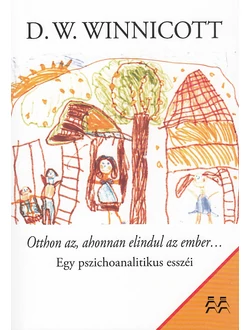 D. W. WINNICOTT
Otthon az, ahonnan elindul az ember…
Egy pszichoanalitikus esszéi